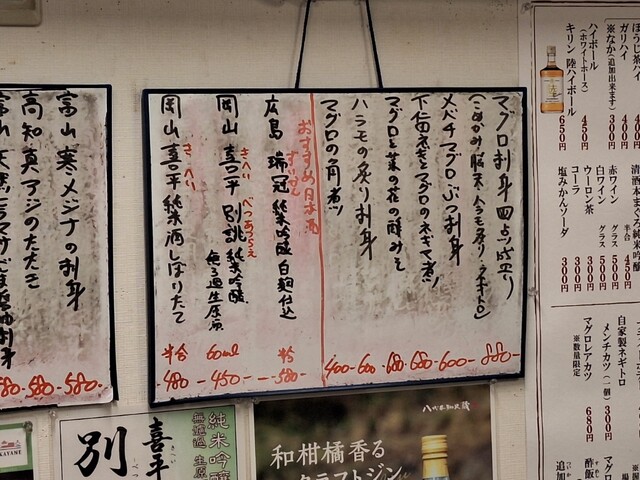 ガリハイ
400円
※なか(追加出来ます)
300円
ハイボール
(ホワイトホース)
450円
キリン 陸ハイボール
650円
半合
450円
赤ワイン
グラス
500円
白ワイン
グラス
500円
ウーロン茶
300円
コーラ
300円
塩みかんソーダ
300円
自家製ネギトロ
メンチカツ(一個)
300円
マグロレアカツ
680円
※数量限定
マグロ刺身四点盛り
880-
メバチマグロぶつ刺身
600-
下仁田ネギとマグロのネギマ煮
680-
マグロと菜の花の酢みそ
680-
ハラモの炙り刺身
600-
マグロの角煮
400-
おすすめ日本酒
ずいかん
広島 瑞冠 純米吟醸 白麹仕込
580-
きへい べつあつらえ
岡山 喜平 別誂 純米吟醸
無ろ過生原酒
60ml
450-
きへい
岡山 喜平 純米酒しぼりたて
半合
480-
富山 寒メジナの刺身
580-
高知 真アジのたたき
580-
純米吟醸
無濾過 生原
喜平
別
八代不知火蔵
和柑橘香る
クラフトジン